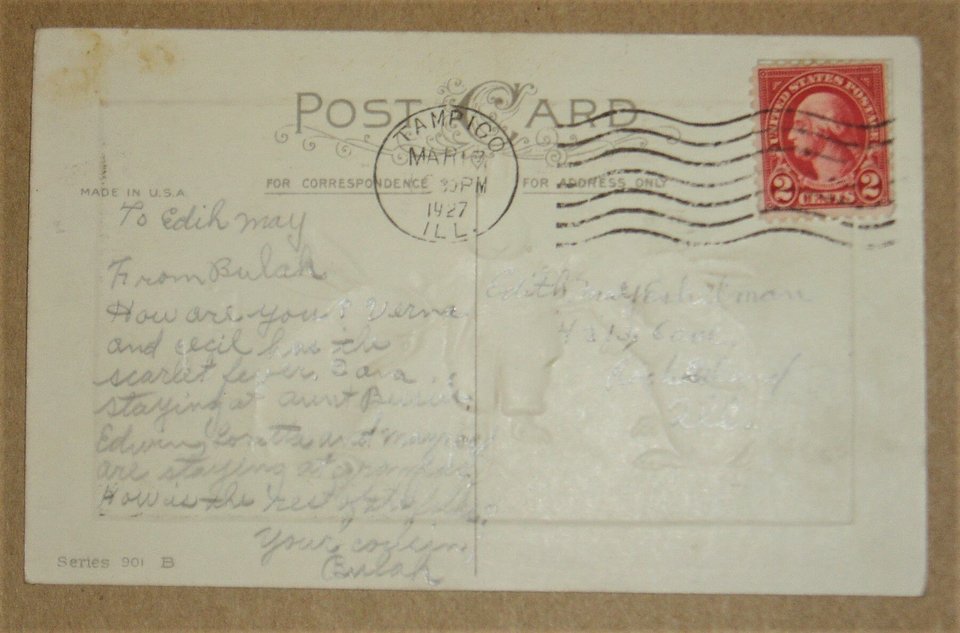 POST CARD
TAMPICO
MAR
PM
1927
ILL.
UNITED STATES POSTAGE
2 CENTS 2
MADE IN U.S.A.
FOR CORRESPONDENCE
FOR ADDRESS ONLY
To Edih may
From Bulah
How are you? Verna
and cecil has the
scarlet fever.
staying at aunt
Edwin, Loretta and
are staying at grandpas
How is the rest of the
Your cousin
Bulah
Edith May
Rock Island
Series 901 B